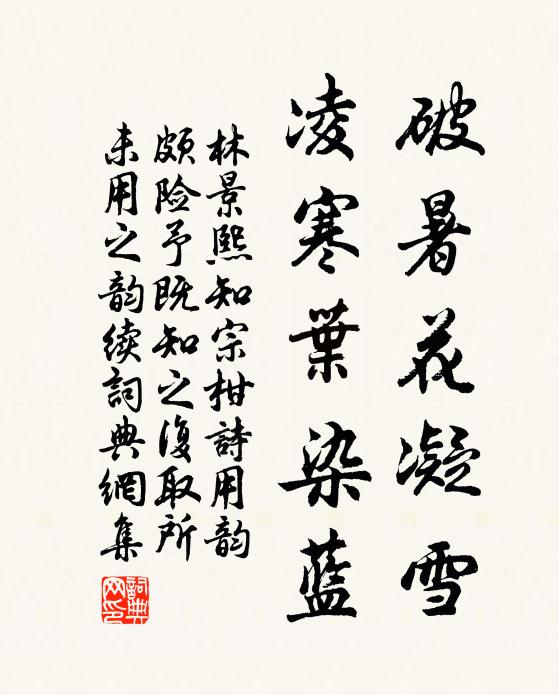 破暑花凝雪
凌寒葉染藍
林景熙知宗柑詩用韵
颇险予既知之復取所
未用之韵续詞典網集
詞典网印